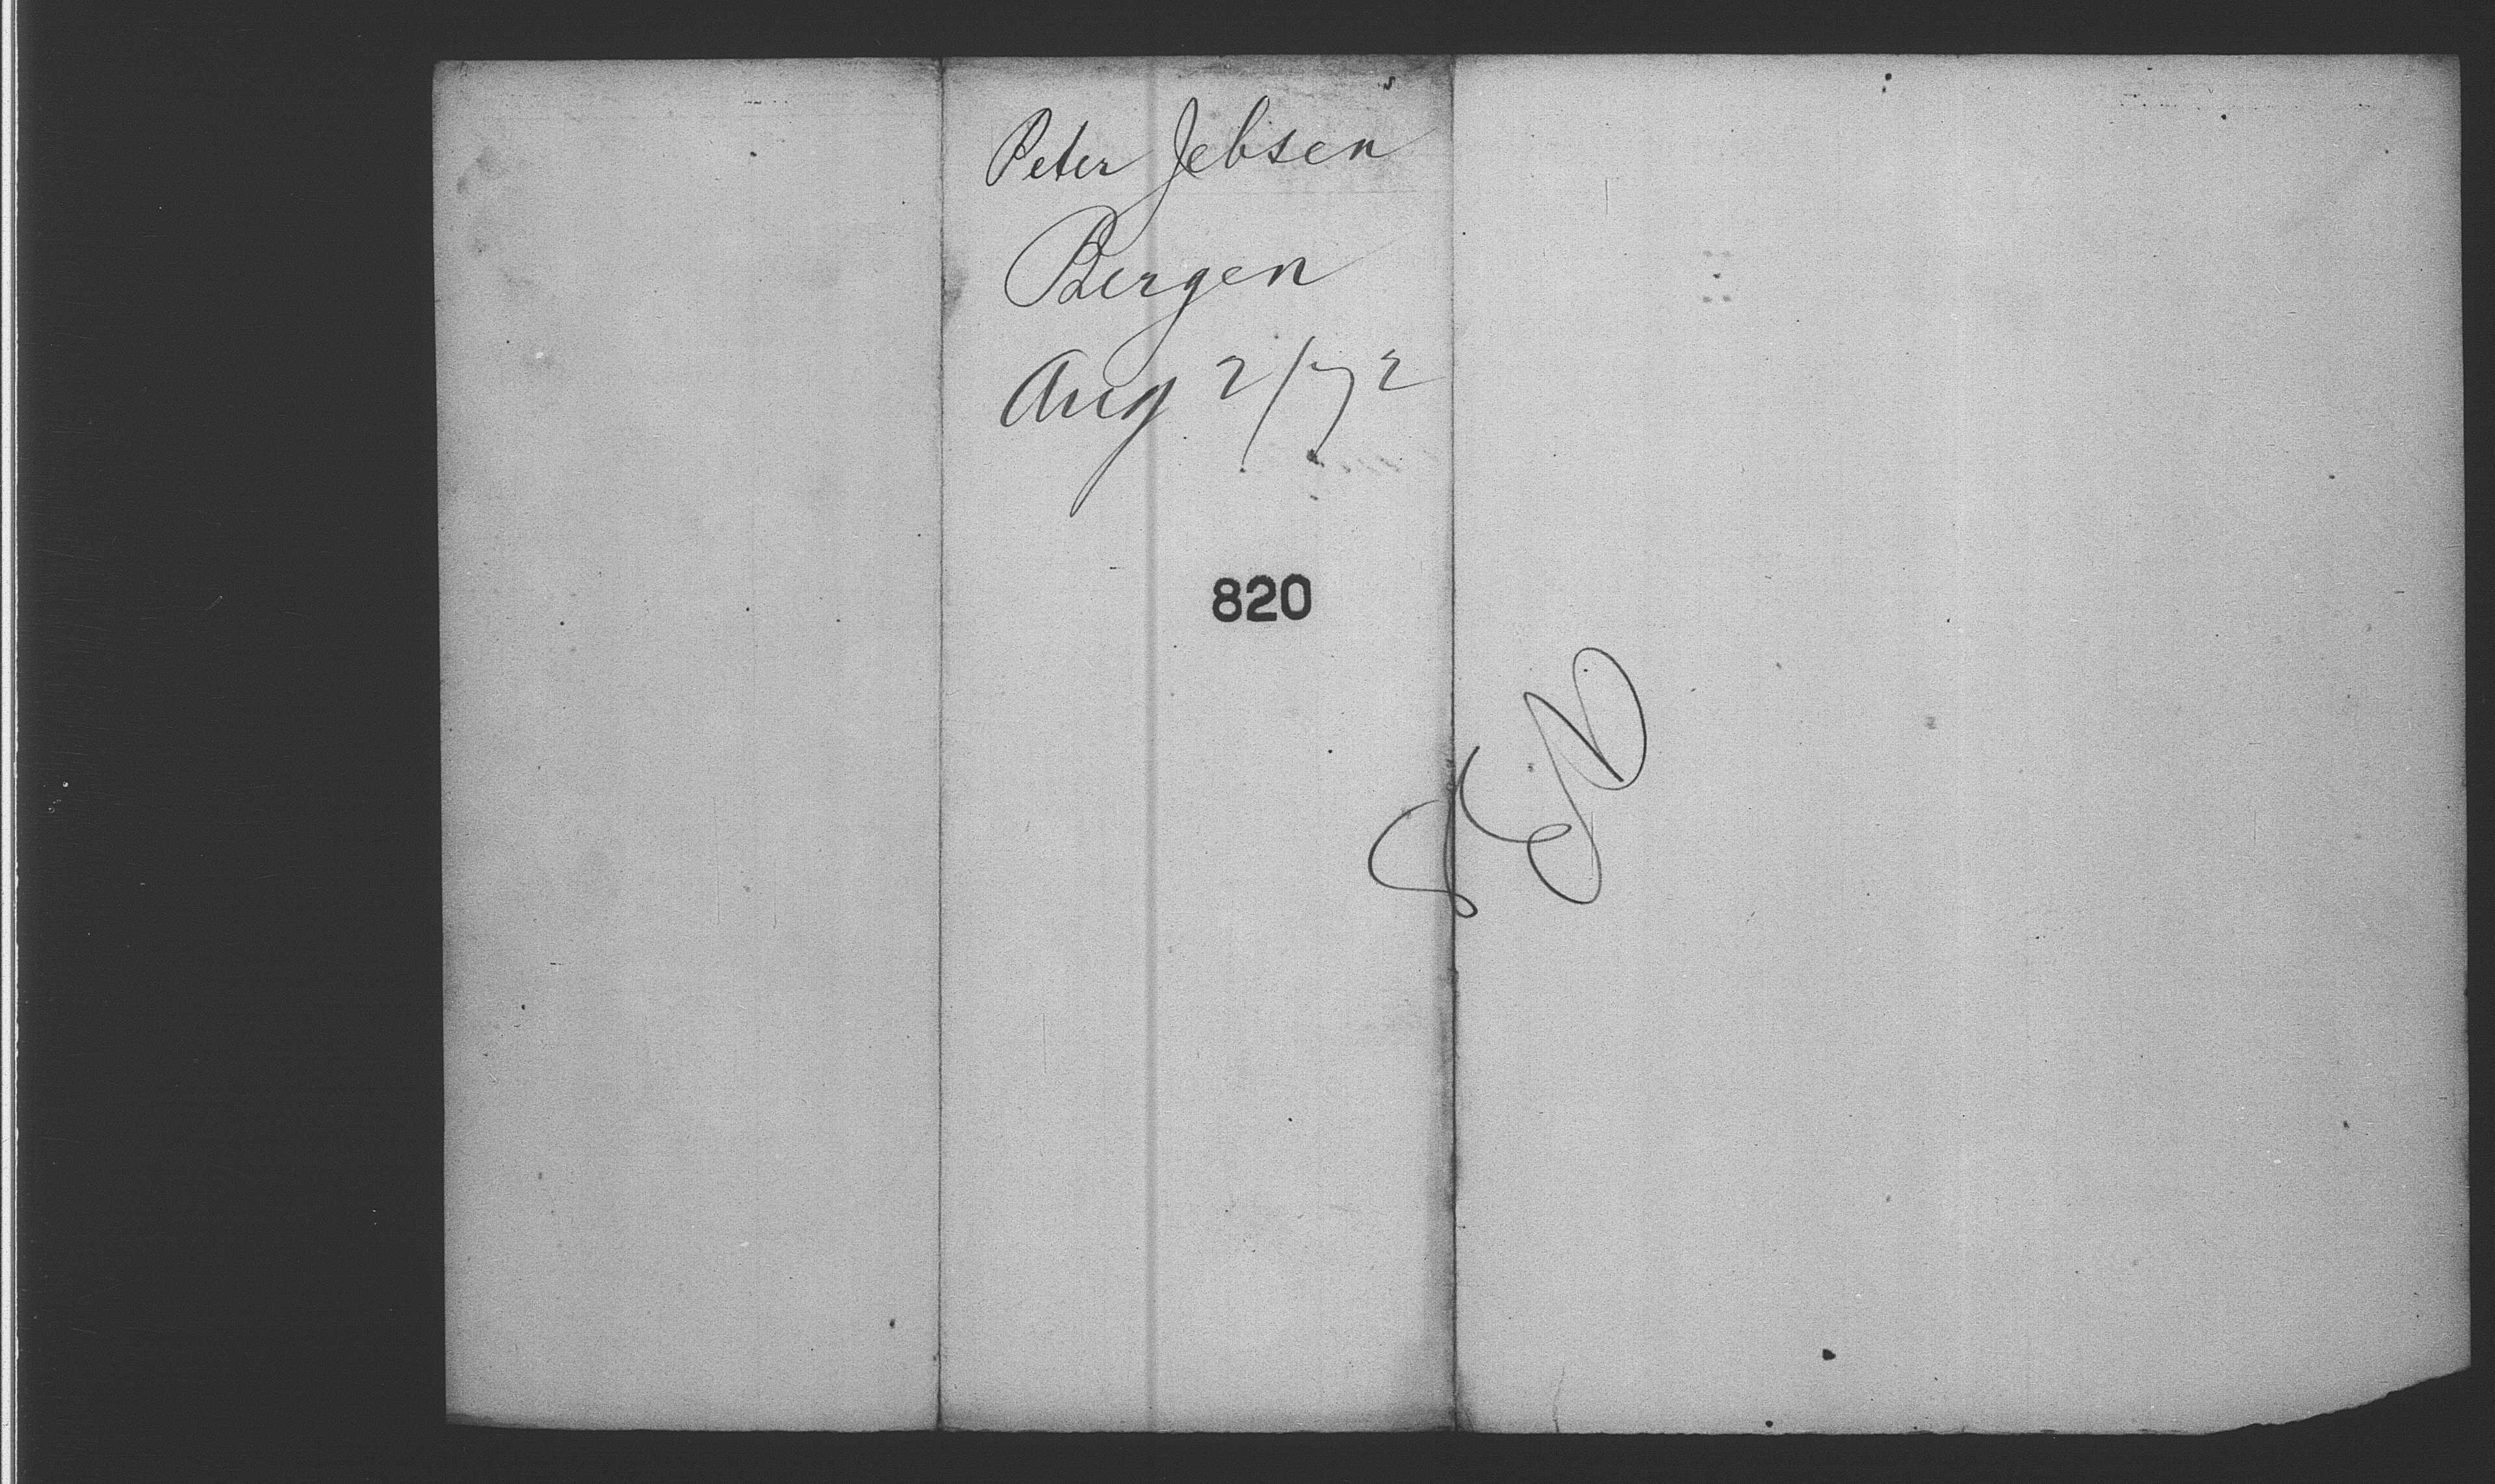 Peter Jebsen
Bergen
Aug 2/72
820